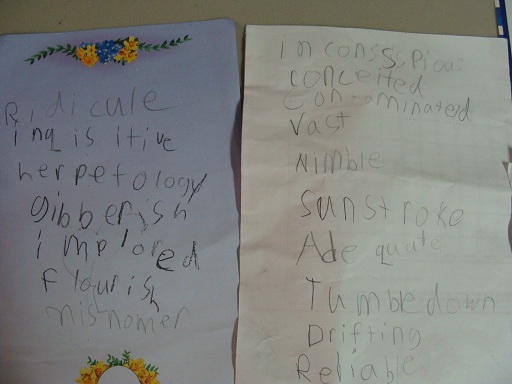 Ridicule
inqisitive
herpetology
gibberish
implored
flourish
misnomer
inconsscpious
conceited
contominated
Vast
Nimble
Sunstroke
Adequate
Tumbledown
Drifting
Reliable